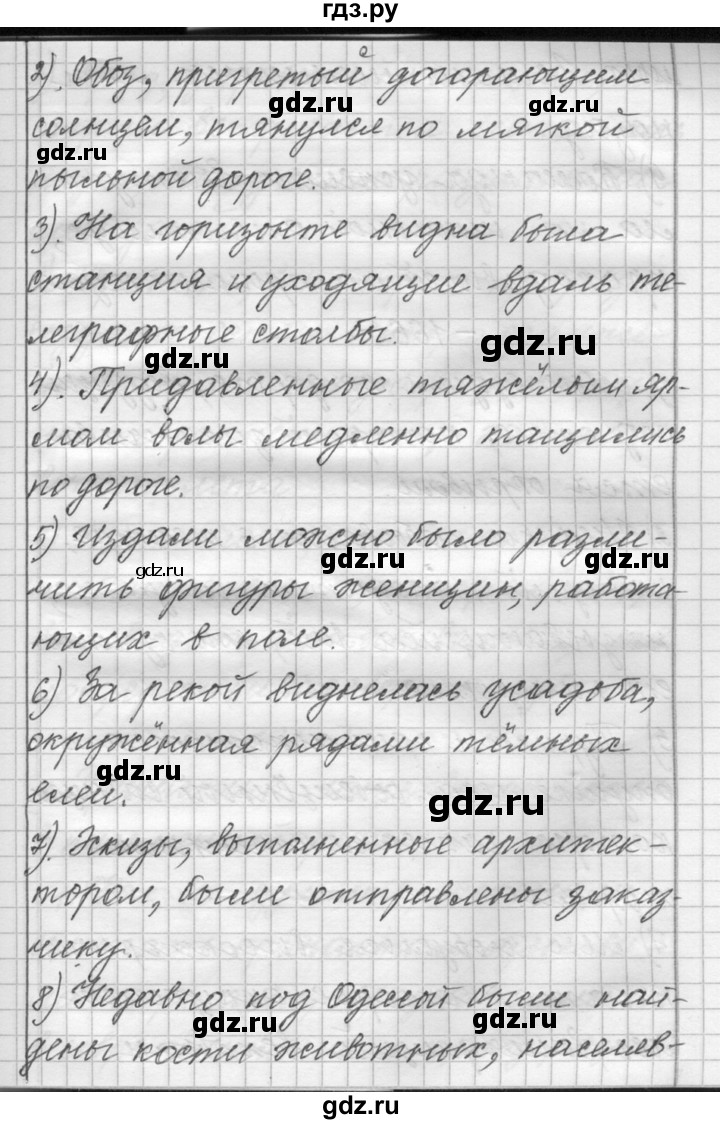 гдз.ру
2). Обоз, пригретый догорающим
gdz.ru gdz.ru
солнцем, тянулся по мягкой
gdz.ru
пыльной дороге.
3). На горизонте видна была
станция и уходящие вдаль те-
леграфные столбы.
gdz.ru gdz.ru
4). Придавленные тяжёлым яр-
мом волы медленно тащились
по дороге.
5) Издали можно было разли-
gdz.ru gdz.ru gdz.ru
чить фигуры женщин, работа-
ющих в поле.
6) За рекой виднелась усадьба,
окружённая рядами тёмных
gdz.ru gdz.ru
елей.
7). Эскизы, выполненные архитек-
тором, были отправлены заказ-
чику.
8) Недавно под Одессой были най-
gdz.ru gdz.ru
дены кости животных, населяв-
gdz.ru